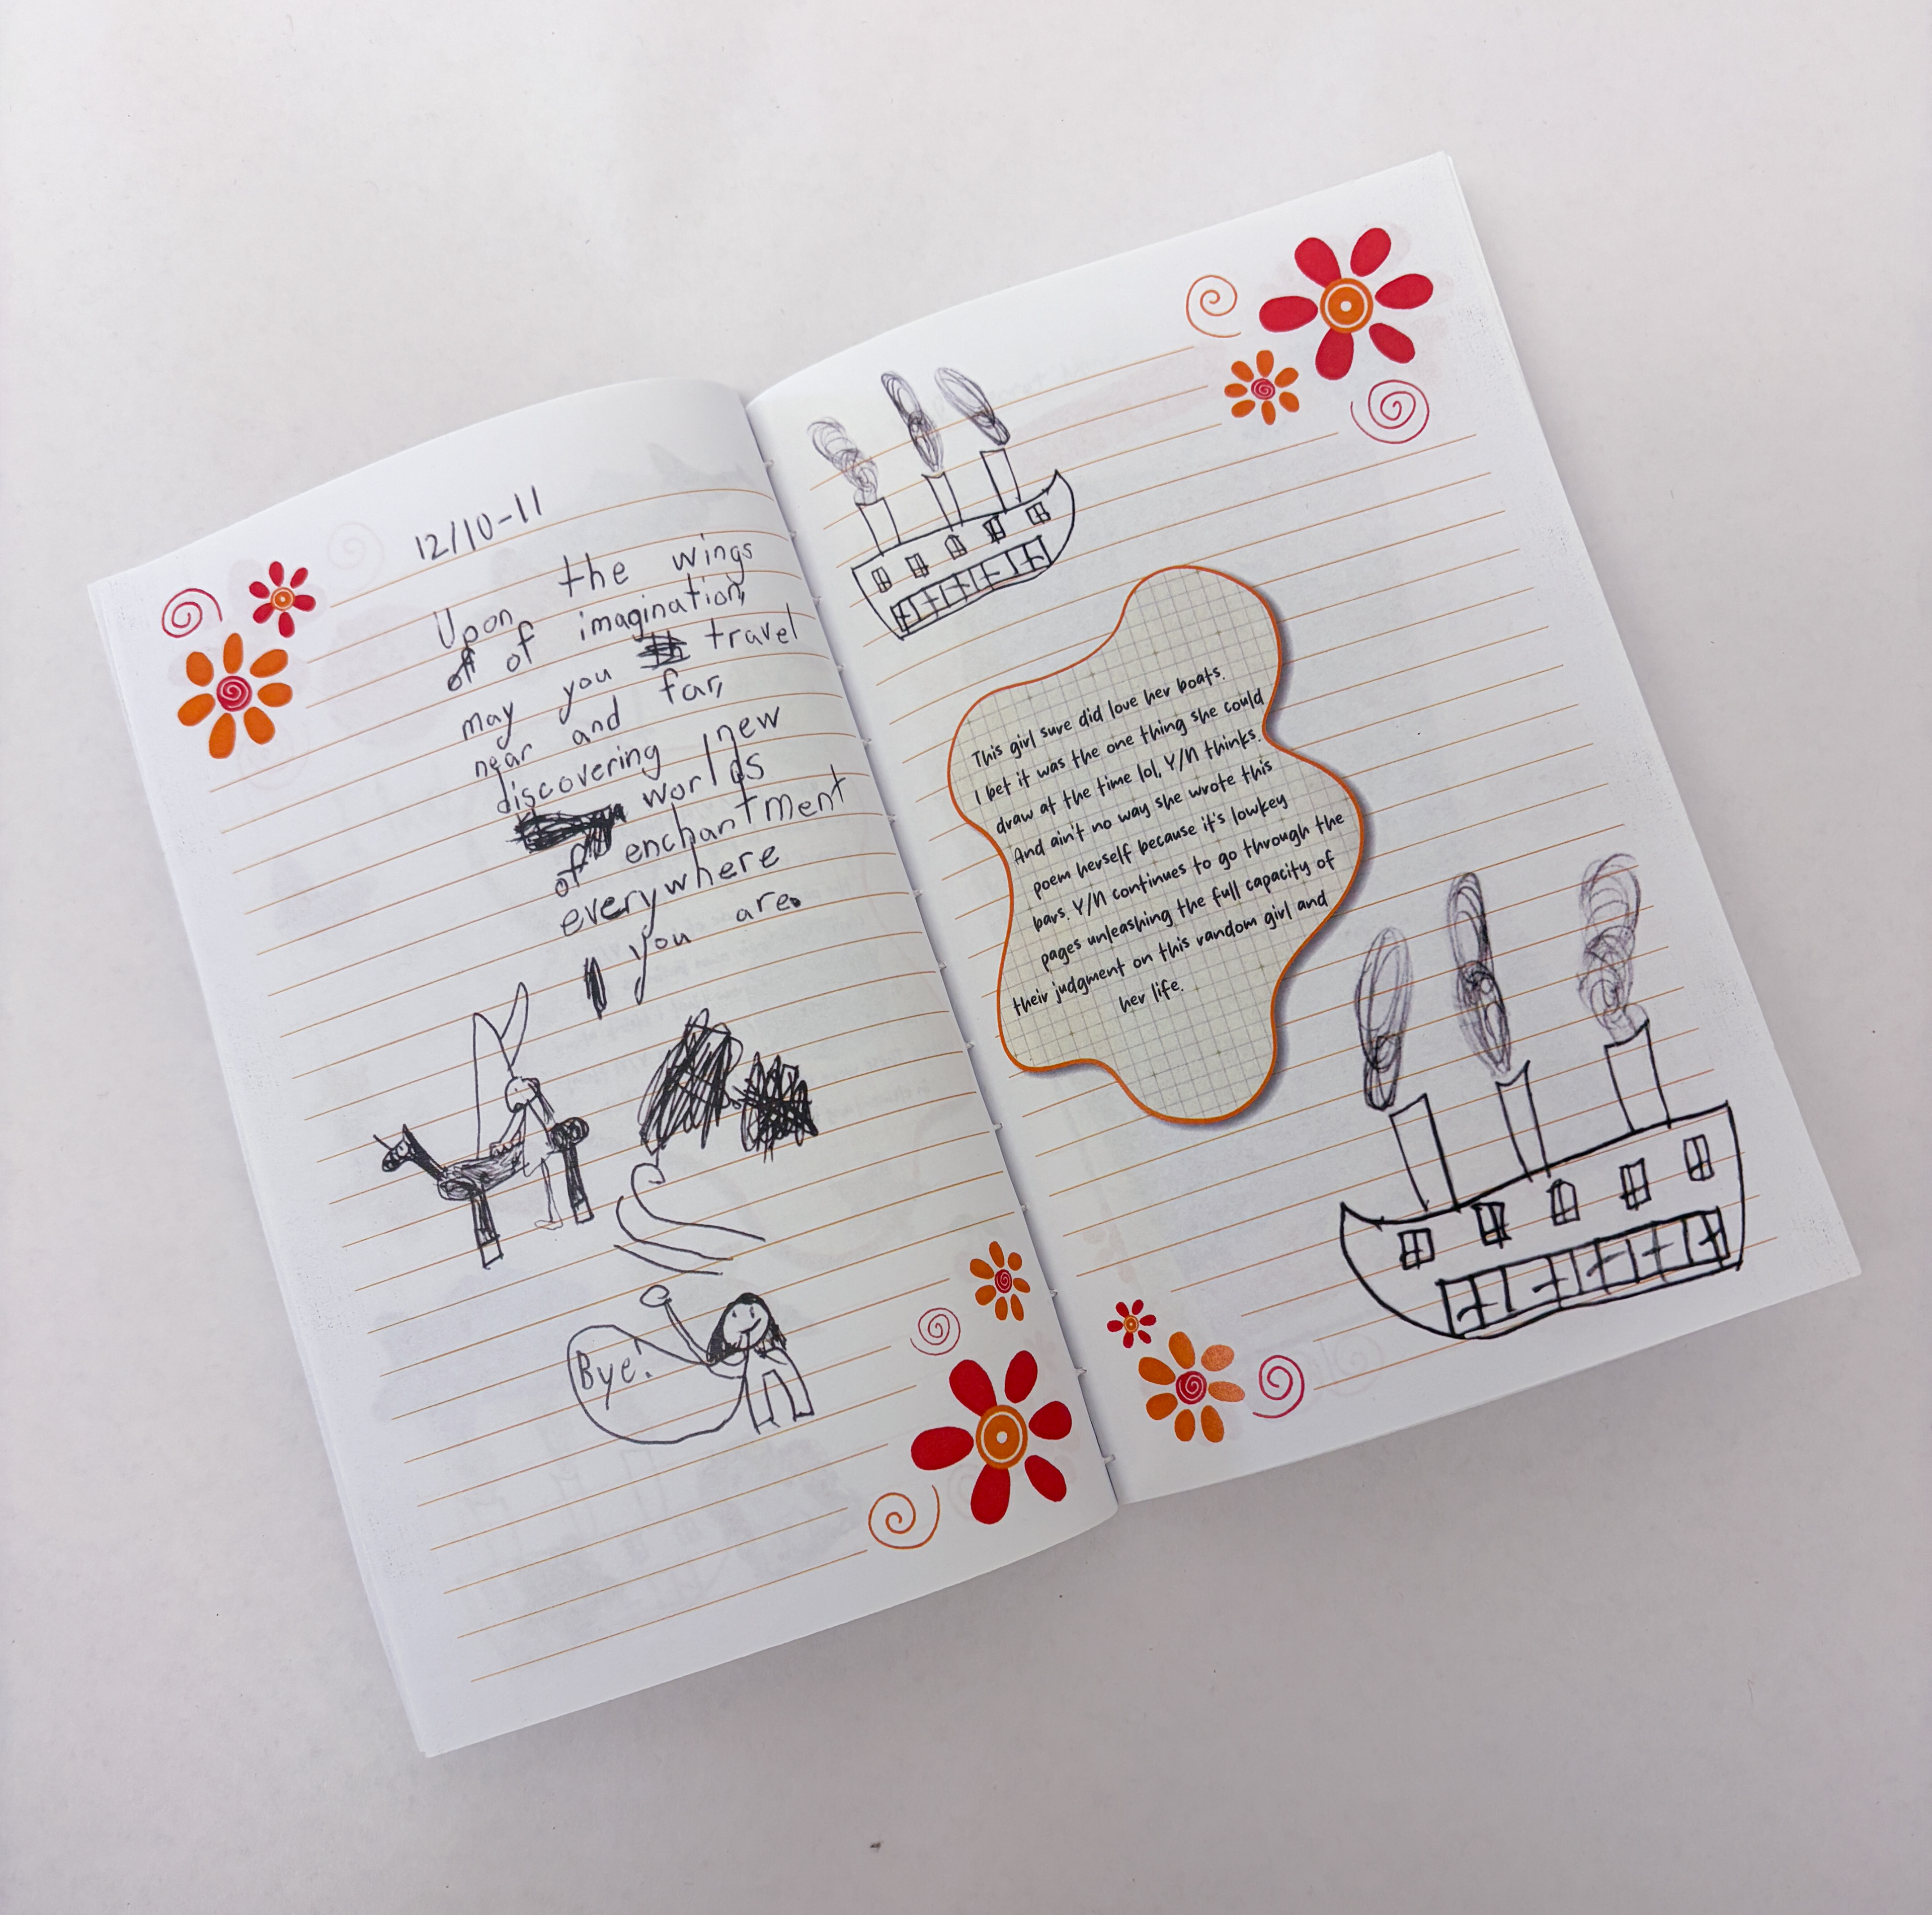 12/10-11
Upon the wings
of imagination,
may you travel
near and far,
discovering new
worlds
of enchantment
everywhere
you are.
Bye!
This girl sure did love her boats.
I bet it was the one thing she could
draw at the time lol, Y/N thinks.
And ain't no way she wrote this
poem herself because it's lowkey
bars. Y/N continues to go through the
pages unleashing the full capacity of
their judgment on this random girl and
her life.